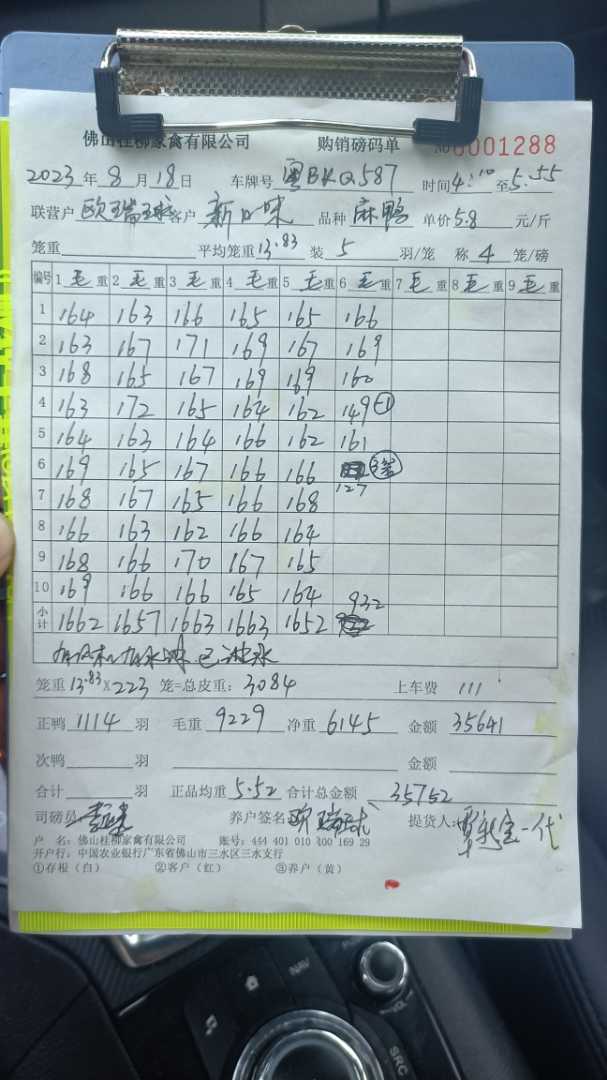 佛山桂柳家禽有限公司 购销磅码单 No 0001288
2023年8月18日 车牌号 粤BKQ587 时间4:10至5:55
联营户 欧瑞球 客户 新口味 品种 麻鸭 单价5.8 元/斤
笼重 平均笼重13.83 装 5 羽/笼 称 4 笼/磅
编号 1 毛 重 2 毛 重 3 毛 重 4 毛 重 5 毛 重 6 毛 重 7 毛 重 8 毛 重 9 毛 重
1 164 163 166 165 165 166
2 163 167 171 169 167 169
3 168 165 167 169 169 160
4 163 172 165 164 162 149 ①
5 164 163 164 166 162 161
6 169 165 167 166 166 127 3笼
7 168 167 165 166 168
8 166 163 162 166 164
9 168 166 170 167 165
10 169 166 166 165 164
小计 1662 1657 1663 1663 1652 932
已冲水
笼重 13.83 X 223 笼=总皮重: 3084 上车费 111
正鸭 1114 羽 毛重 9229 净重 6145 金额 35641
次鸭 羽 金额
合计 羽 正品均重 5.52 合计总金额 35752
司磅员 养户签名 欧瑞球 提货人: 一代
户 名: 佛山桂柳家禽有限公司 账号: 444 401 010 400 169 29
开户行: 中国农业银行广东省佛山市三水区三水支行
①存根（白） ②客户（红） ③养户（黄）
NAV
VOL
SRC